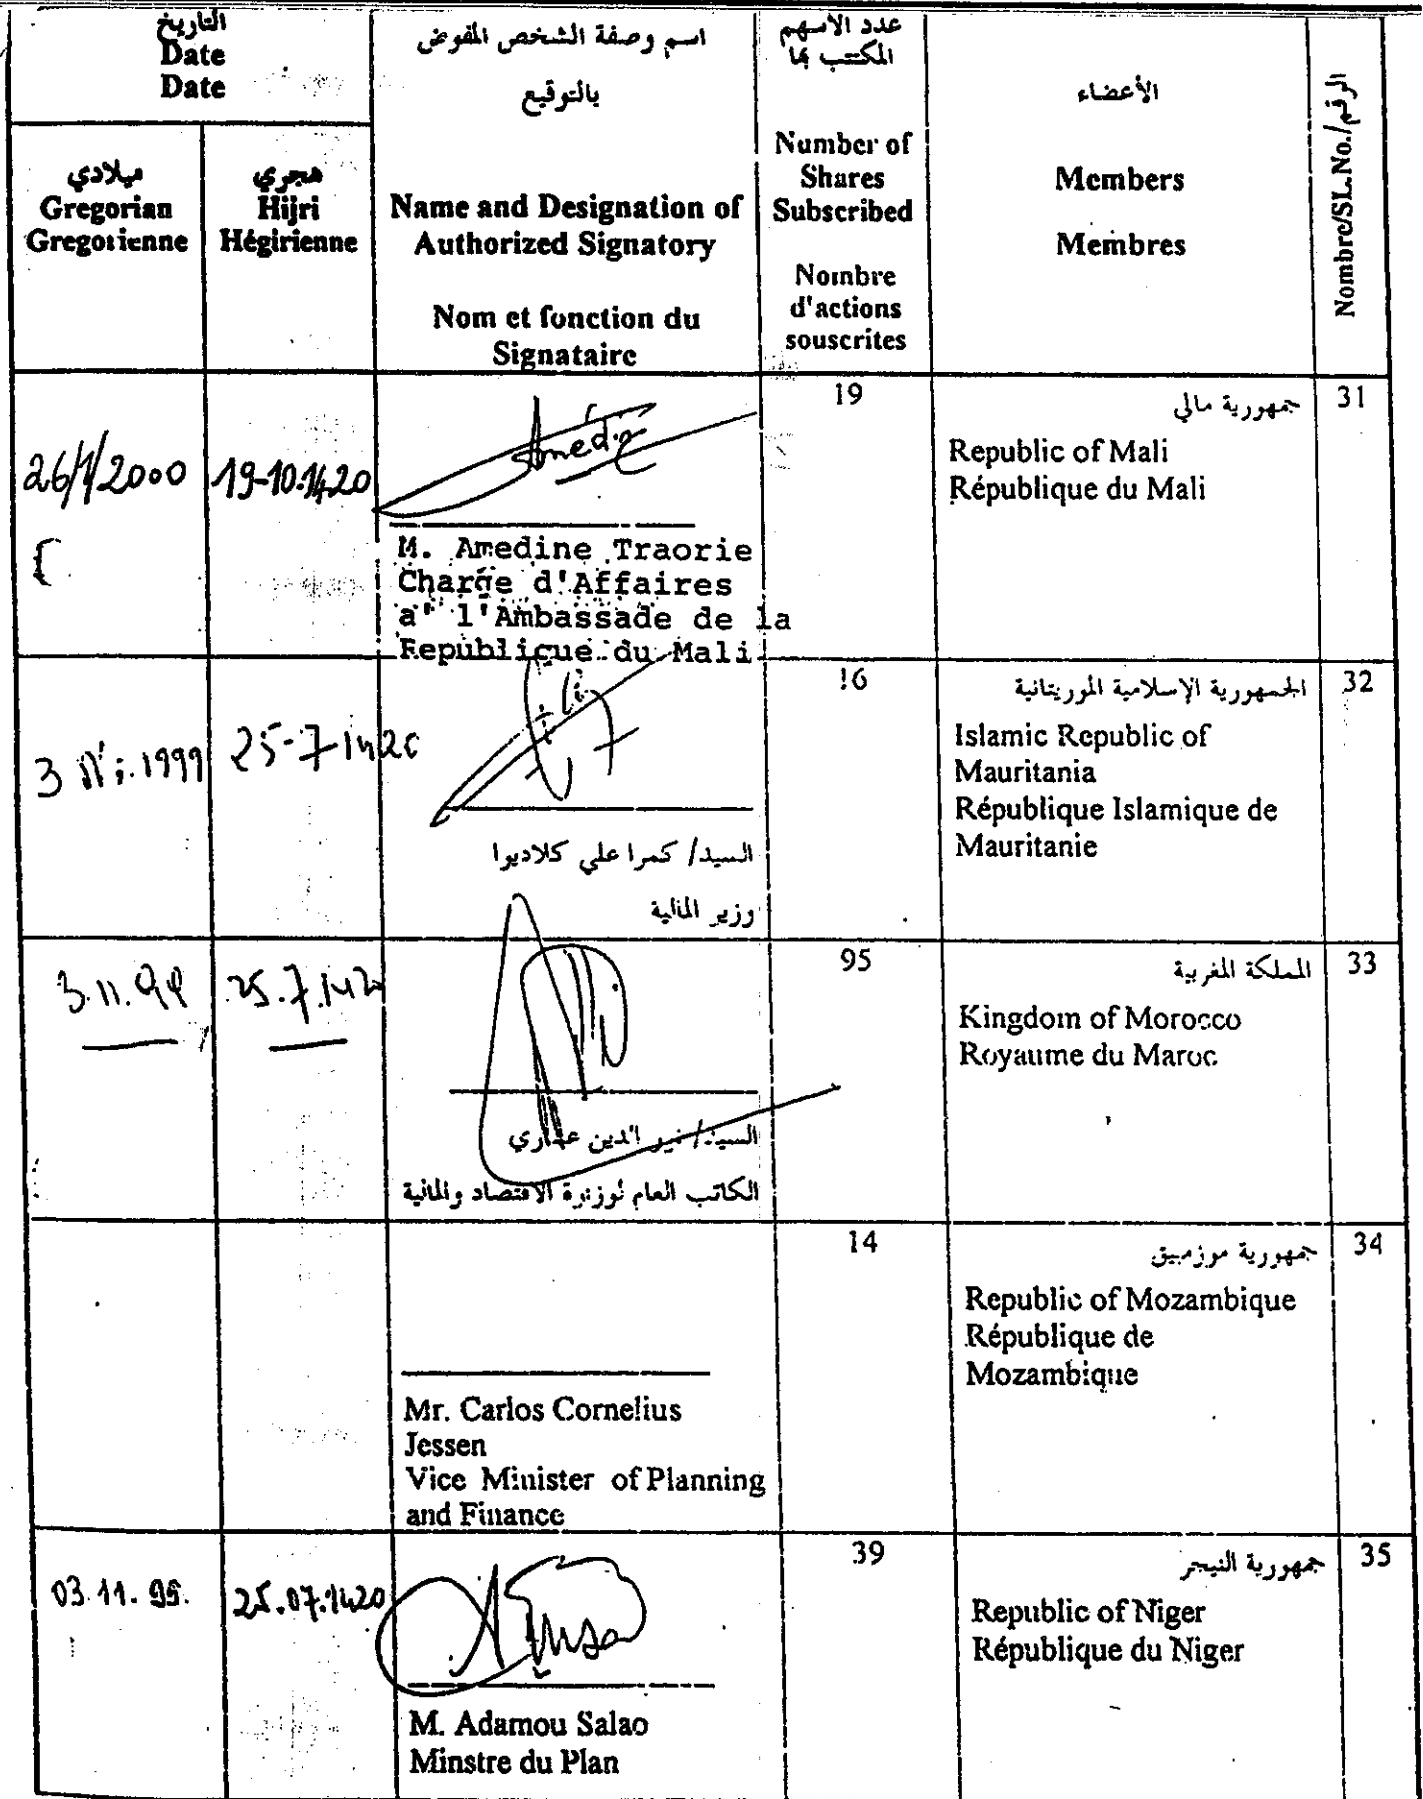 التاريخ
Date
Date
ميلادي
Gregorian
Gregorienne
هجري
Hijri
Hégirienne
اسم وصفة الشخص المفوض
بالتوقيع
Name and Designation of
Authorized Signatory
Nom et fonction du
Signataire
عدد الاسهم
المكتتب بها
Number of
Shares
Subscribed
Nombre
d'actions
souscrites
الأعضاء
Members
Membres
الرقم/Nombre/SL.No.
26/1/2000
19-10-1420
M. Amedine Traorie
Charge d'Affaires
a" l'Ambassade de la
Republique du Mali
19
جمهورية مالي
Republic of Mali
République du Mali
31
3 1999
25-7-1420
السيد/ كمرا علي كلاديوا
وزير المالية
16
الجمهورية الإسلامية الموريتانية
Islamic Republic of
Mauritania
République Islamique de
Mauritanie
32
3.11.99
25.7.1420
السيد/ الدين
الكاتب العام لوزارة الاقتصاد والمالية
95
المملكة المغربية
Kingdom of Morocco
Royaume du Maroc
33
Mr. Carlos Cornelius
Jessen
Vice Minister of Planning
and Finance
14
جمهورية موزمبيق
Republic of Mozambique
République de
Mozambique
34
03.11.99.
25.07.1420
M. Adamou Salao
Minstre du Plan
39
جمهورية النيجر
Republic of Niger
République du Niger
35